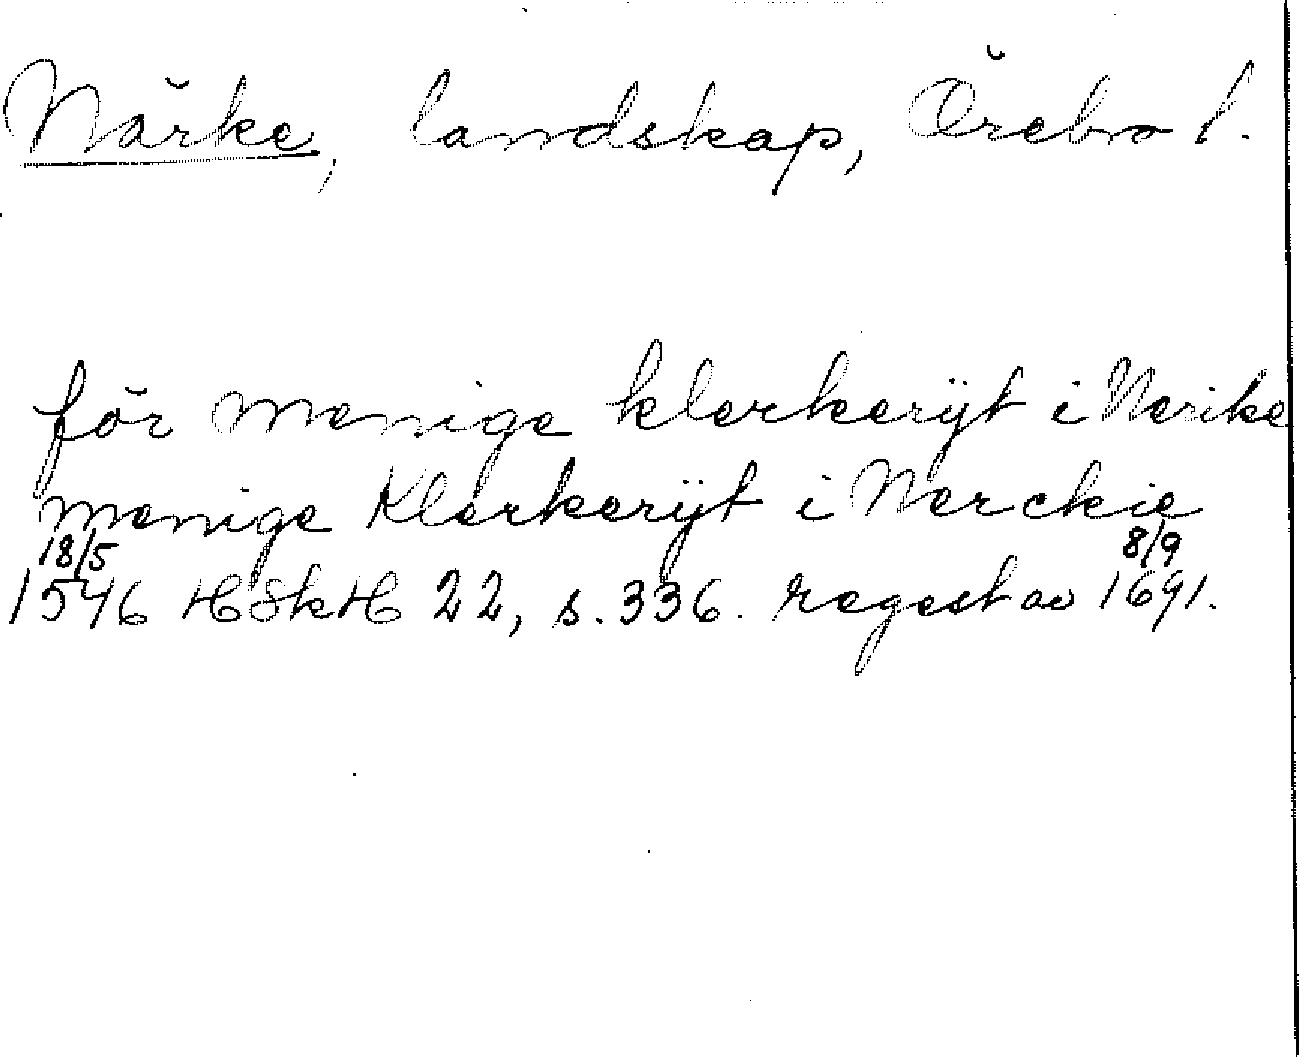 Närke, landskap, Örebro l.
för menige klerkerijt i Nerike
menige Klerkerijt i Nerckie
18/5 8/9
1546 HSkH 22, s. 336. regest av 1691.